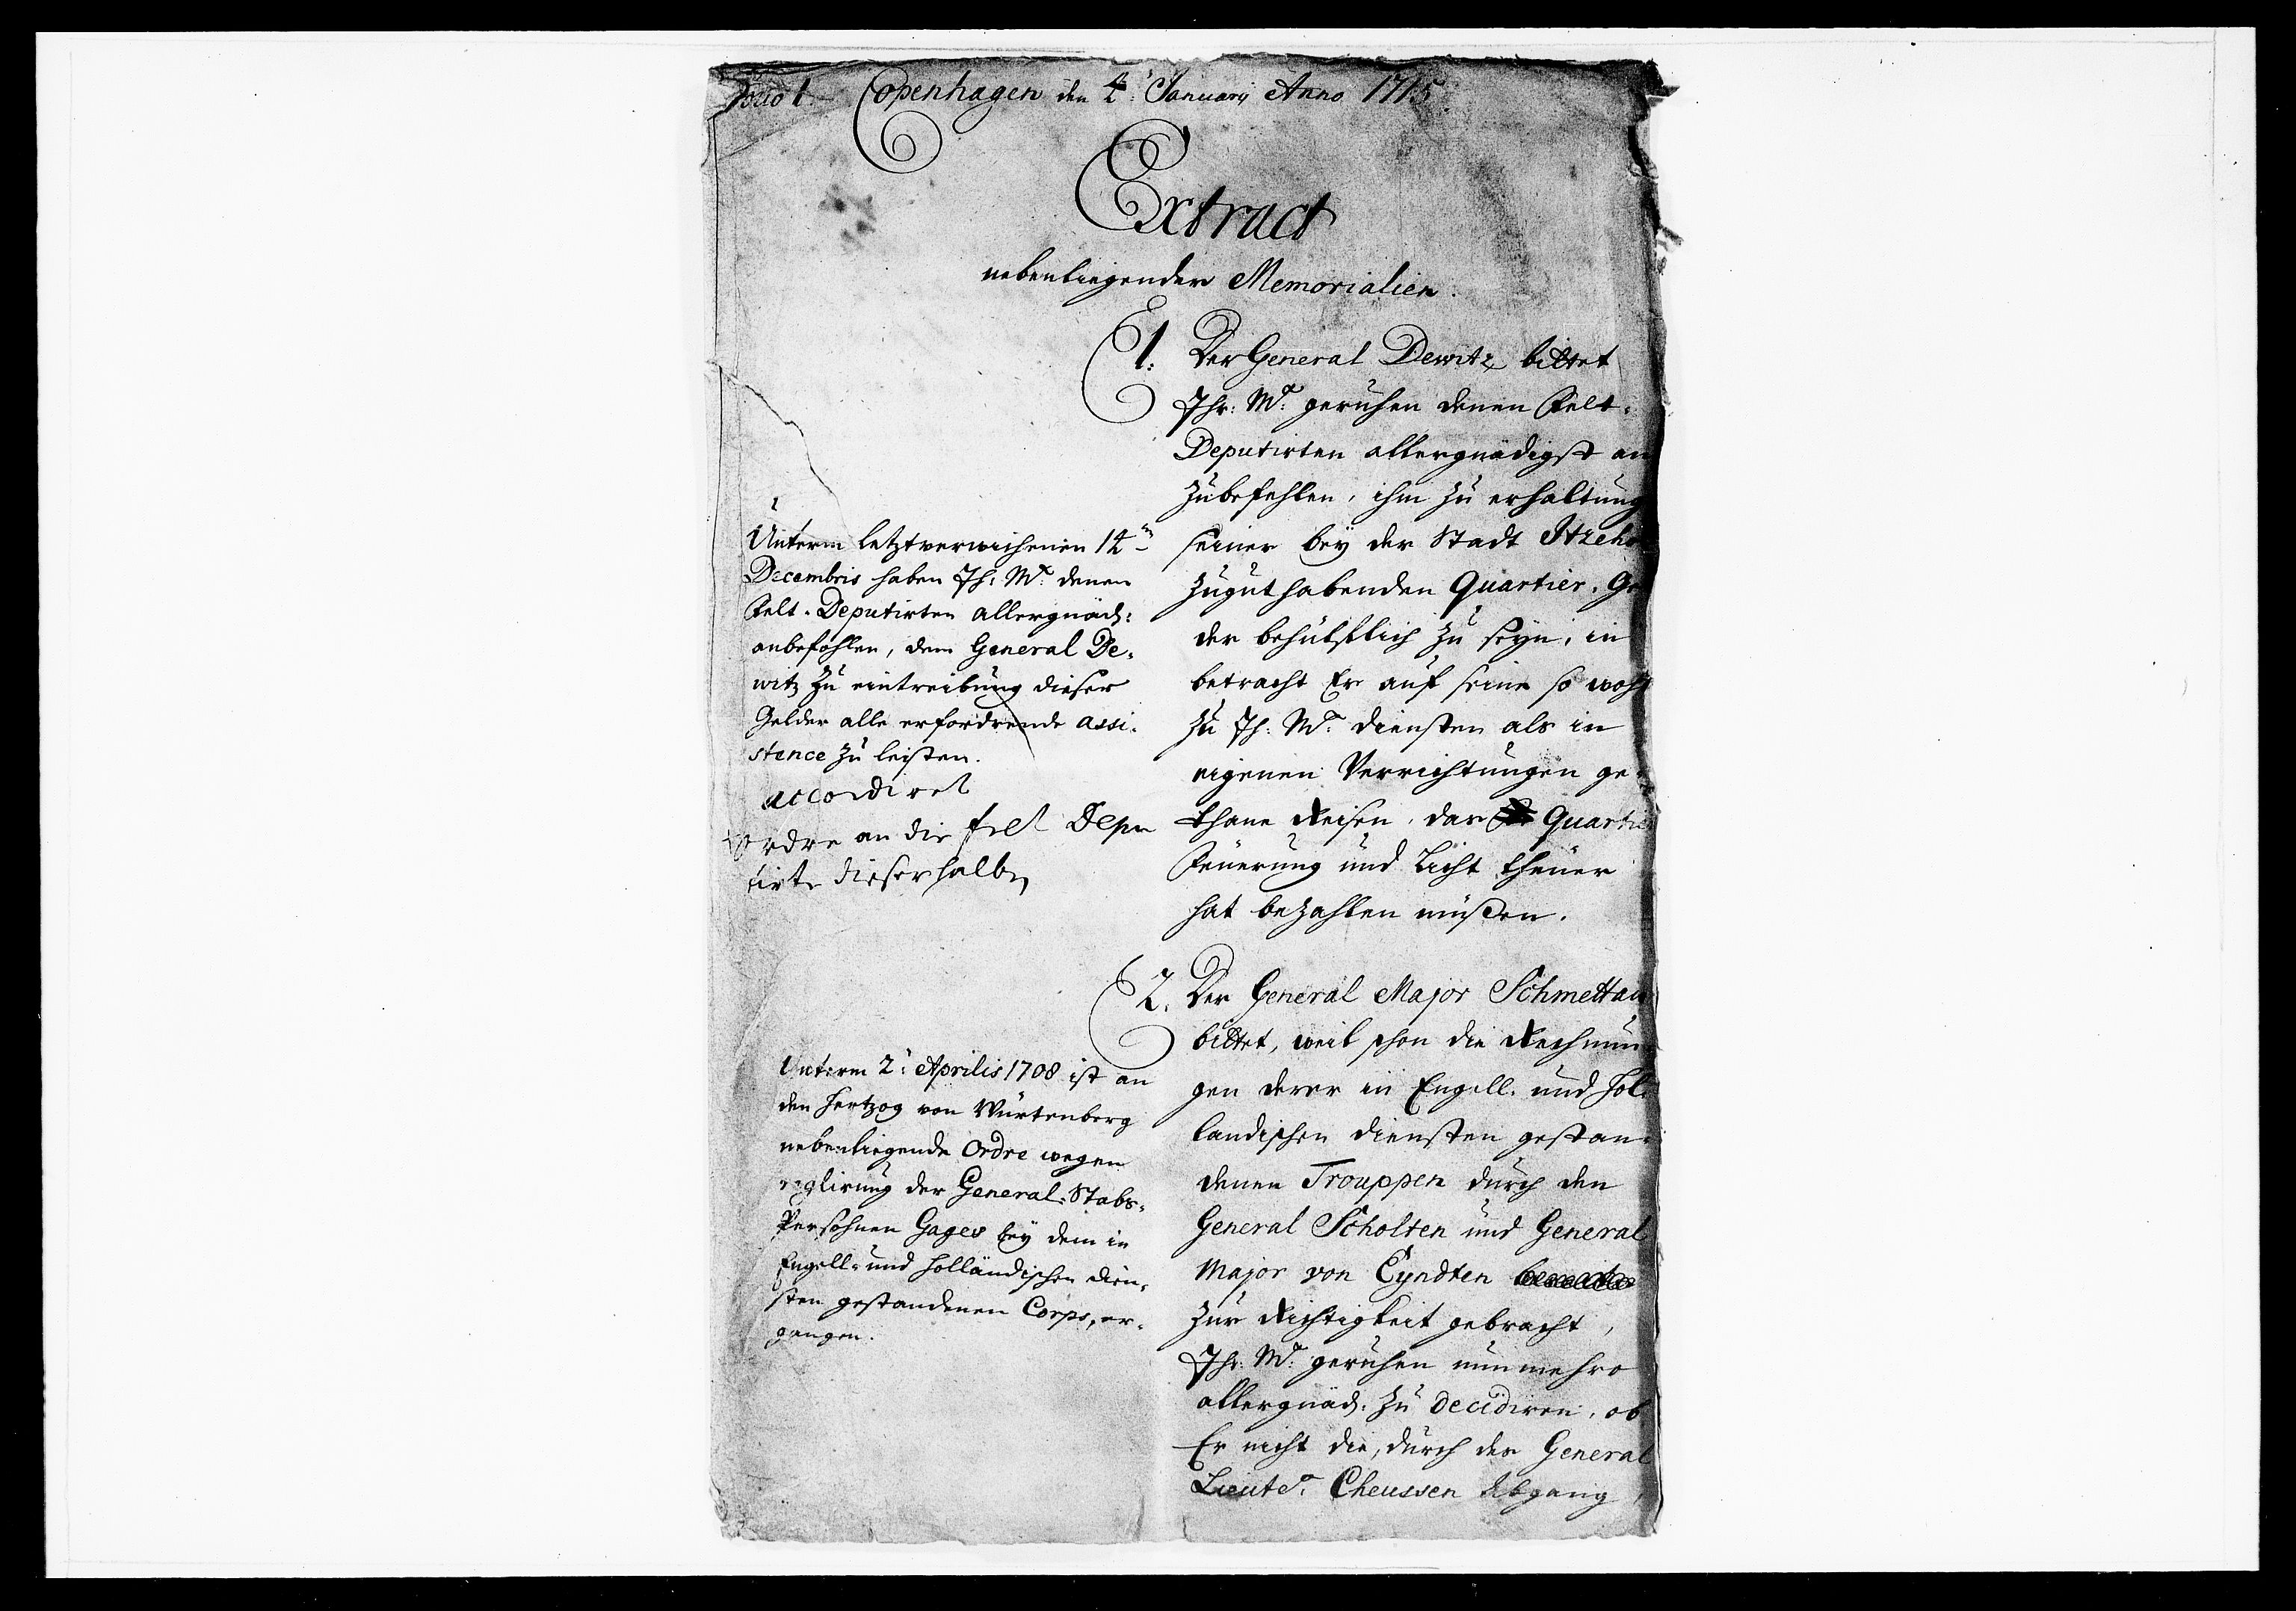 Folio 1. Copenhagen den 4t. Januarij Anno 1715.
Extract
nebenliegender Memorialien.
1. Der General Dewitz bittet
Ihr: Mt: geruhen denen Felt-
Deputirten allergnädigst an
zubefehlen, ihm zu erhaltung
seiner bey der Stadt Itzeho
zugut habenden Quartier-Ge
der behülfflich zu seyn, in
betracht Er auf seine so wohl
zu Ih: Mt: diensten als in
eigenen Verrichtungen ge-
thane Reisen, das Quartie
Feüerung und Licht theüer
hat bezahlen müßen.
Unterm letztverwichenen 14ten
Decembris haben Ih: Mt: denen
Felt-Deputirten allergnäd:
anbefohlen, dem General De-
witz zu eintreibung dieser
Gelder alle erfordrende assi-
stence zu leisten.
accordiret
Ordre an die felt Depu
tirte dieserhalben
2. Der General Major Schmettau
bittet, weil schon die Rechnun
gen derer in Engell. und Hol-
landischen diensten gestan-
denen Trouppen durch den
General Scholten und General
Major von Eyndten
zur Richtigkeit gebracht,
Ihr: Mt: geruhen nunmehro
allergnäd. zu decidiren, ob
Er nicht die, durch des General
Lieutet. Cheussen Abgang,
Unterm 2t. Aprilis 1708 ist an
den Hertzog von Würtenberg
nebenliegende Ordre wegen
reglirung der General-Stabs-
Persohnen Gages bey dem in
Engell- und Holländischen dien-
sten gestandenen Corps, er-
gangen.